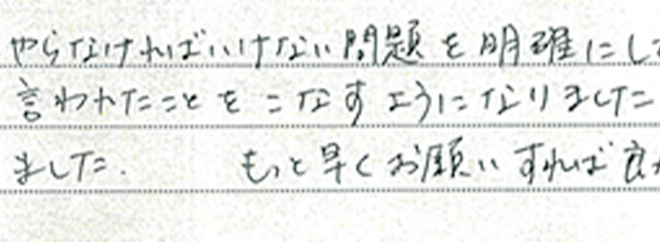 やらなければいけない問題を明確にして
言われたことをこなすようになりました
ました. もっと早くお願いすれば良か